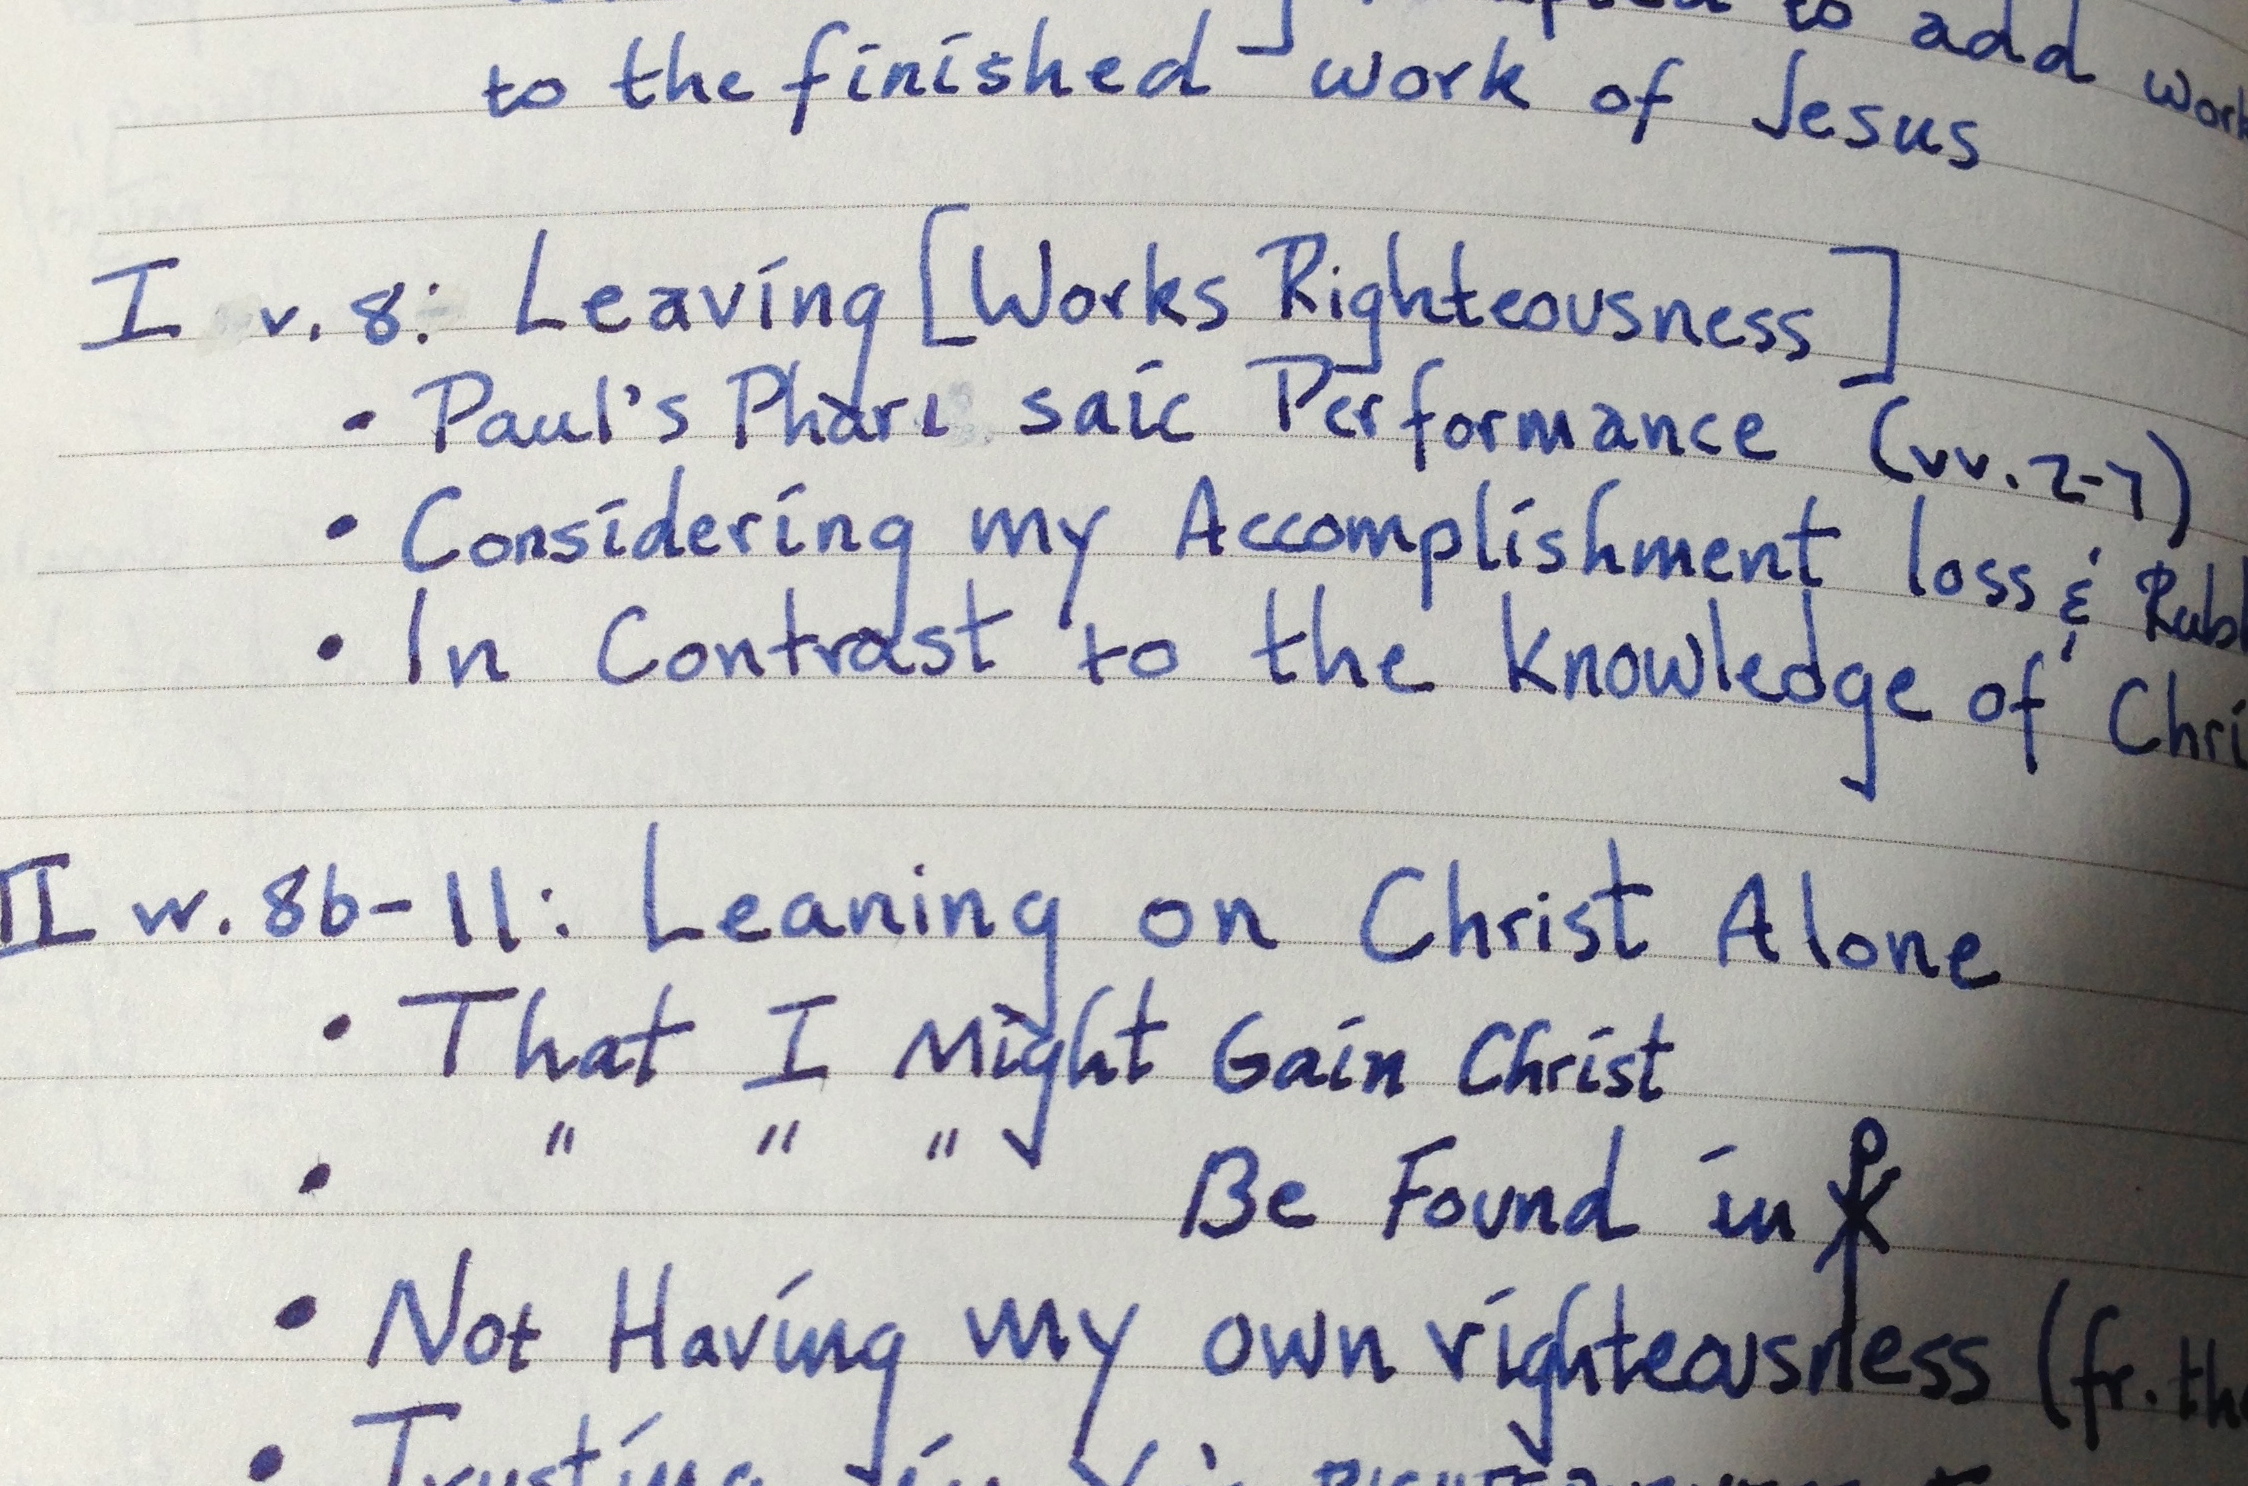 to add
to the finished ] work of Jesus
I v. 8: Leaving [Works Righteousness]
• Paul's Phari saic Performance (vv. 2-7)
• Considering my Accomplishment loss &
• In Contrast to the knowledge of
II vv. 8b-11: Leaning on Christ Alone
• That I Might Gain Christ
• " " " Be Found in ⳩
• Not Having my own righteousness (fr.
• Trusting in